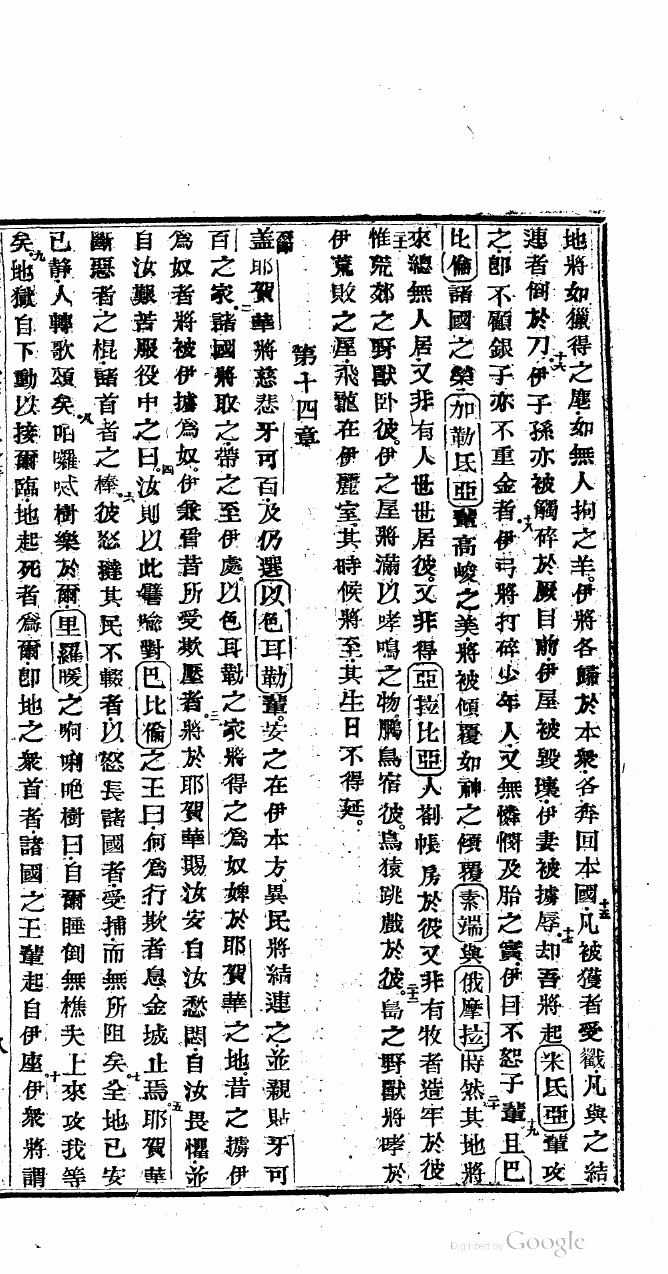 地將如獵得之塵如無人拘之羊。伊將各歸於本衆各奔回本國。十五凡被獲者受戳凡與之結
連者倒於刀。十六伊子孫亦被觸碎於厥目前伊屋被毀壞伊妻被擄辱。十七却吾將起米氐亞輩攻
之卽不顧銀子亦不重金者。十八伊弓將打碎少年人又無憐憫及胎之實伊目不恕子輩。十九且巴
比倫諸國之榮加勒氐亞輩高峻之美將被傾覆如神之傾覆素端與俄摩拉時。二十然其地將
來總無人居又非有人世世居彼。又非得亞拉比亞人剳帳房於彼又非有牧者造牢於彼
二十一惟荒郊之野獸卧彼。伊之屋將滿以哮鳴之物鵬鳥宿彼。鳥猿跳戲於彼。二十二島之野獸將哮於
伊荒敗之屋飛龍在伊麗室。其時候將至其生日不得延。
第十四章
第一節 蓋耶賀華將慈悲牙可百及仍選以色耳勒輩。安之在伊本方異民將結連之並親貼牙可
百之家。二諸國將取之帶之至伊處。以色耳勒之家將得之爲奴婢於耶賀華之地。昔之擄伊
爲奴者將被伊擄爲奴。伊衆管昔所受欺壓者。三將於耶賀華賜汝安自汝愁悶自汝畏懼並
自汝艱苦服役中之日。四汝則以此譬喻對巴比倫之王曰何爲行欺者息金城止焉。五耶賀華
斷惡者之棍諸首者之棒。六彼怒撻其民不輟者以怒長諸國者受捕而無所阻矣。七全地已安
已静人轉歌頌矣。八咟囉忒樹樂於爾里羅暖之啊唎咃樹曰自爾睡倒無樵夫上來攻我等
矣。九地獄自下動以接爾臨地起死者爲爾卽地之衆首者諸國之王輩起自伊座。十伊衆將謂
Digitized by Google